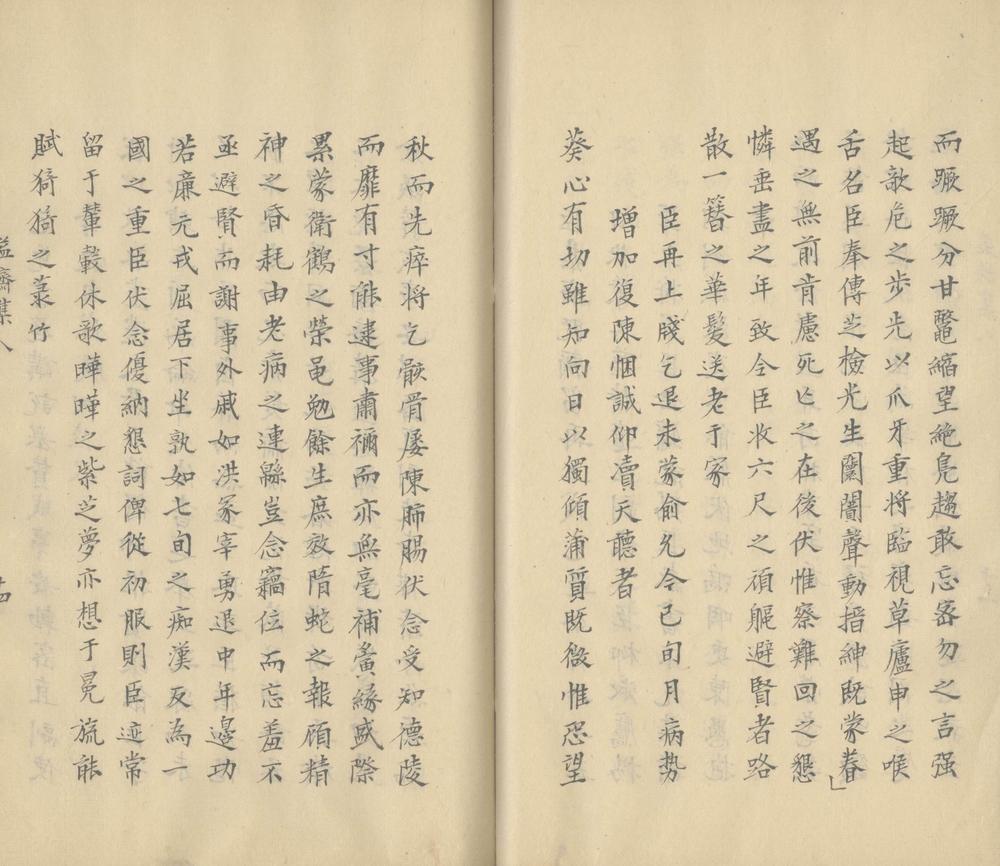 而蹶蹶分甘鼈縮望絶鳧趨敢忘密勿之言强
起欹危之步先以爪牙重將臨視草廬申之喉
舌名臣奉傳芝檢光生闤闠聲動搢紳既蒙眷
遇之無前肯慮死亡之在後伏惟察難回之懇
憐垂盡之年致令臣收六尺之碩軀避賢者路
散一簪之華髮送老于家
臣再上牋乞退未蒙俞允今已旬月病勢
增加復陳悃誠仰瀆天聽者
葵心有切雖知向日以獨傾蒲質既微惟恐望
秋而先瘁將乞骸骨屡陳肺腸伏念受知德陵
而靡有寸能逮事肅禰而亦無毫補夤緣盛際
累蒙衛鶴之榮黽勉餘生庶效隋蛇之報頎精
神之昏耗由老病之連緜豈念竊位而忘羞不
亟避賢而謝事外戚如洪冢宰勇退中年邊功
若廉元戎屈居下坐孰如七旬之痴漢反為一
國之重臣伏念優納懇詞俾從初服則臣迹常
留于輦轂休歌曄曄之紫芝夢亦想于冕旒能
賦猗猗之菉竹
益齋集八